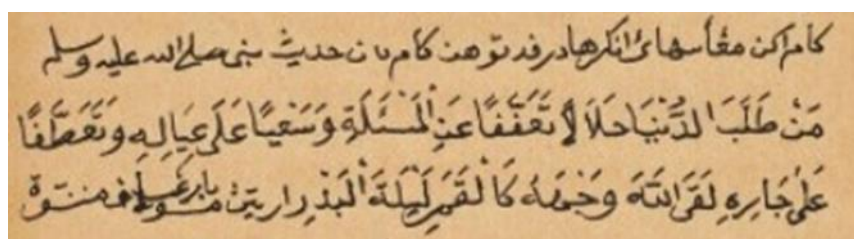 مڠأسهائ انكرها درفد توهن كام دان حديث نبي صلى الله عليه وسلم
مَنْ طَلَبَ الدُّنْيَا حَلَالًا تَعَفُّفًا عَنِ الْمَسْئَلَةِ وَسَعْيًا عَلَى عِيَالِهِ وَتَعَطُّفًا
عَلَى جَارِهِ لَقَى اللهَ وَجْهُهُ كَالْقَمَرِ لَيْلَةَ الْبَدْرِ ارتين بارڠسياف